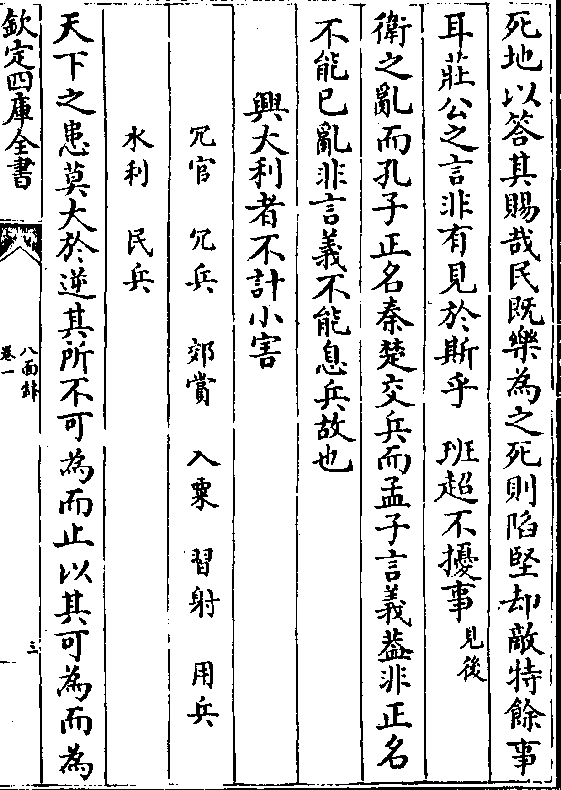 死地以答其賜哉民既樂為之死則陷堅却敵特餘事
耳莊公之言非有見於斯乎　班超不擾事見後
衛之亂而孔子正名秦楚交兵而孟子言義葢非正名
不能已亂非言義不能息兵故也
興大利者不計小害
冗官　冗兵　郊賞　入粟　習射　用兵
水利　民兵
天下之患莫大於逆其所不可為而止以其可為而為
欽定四庫全書
八面鋒
卷一
三